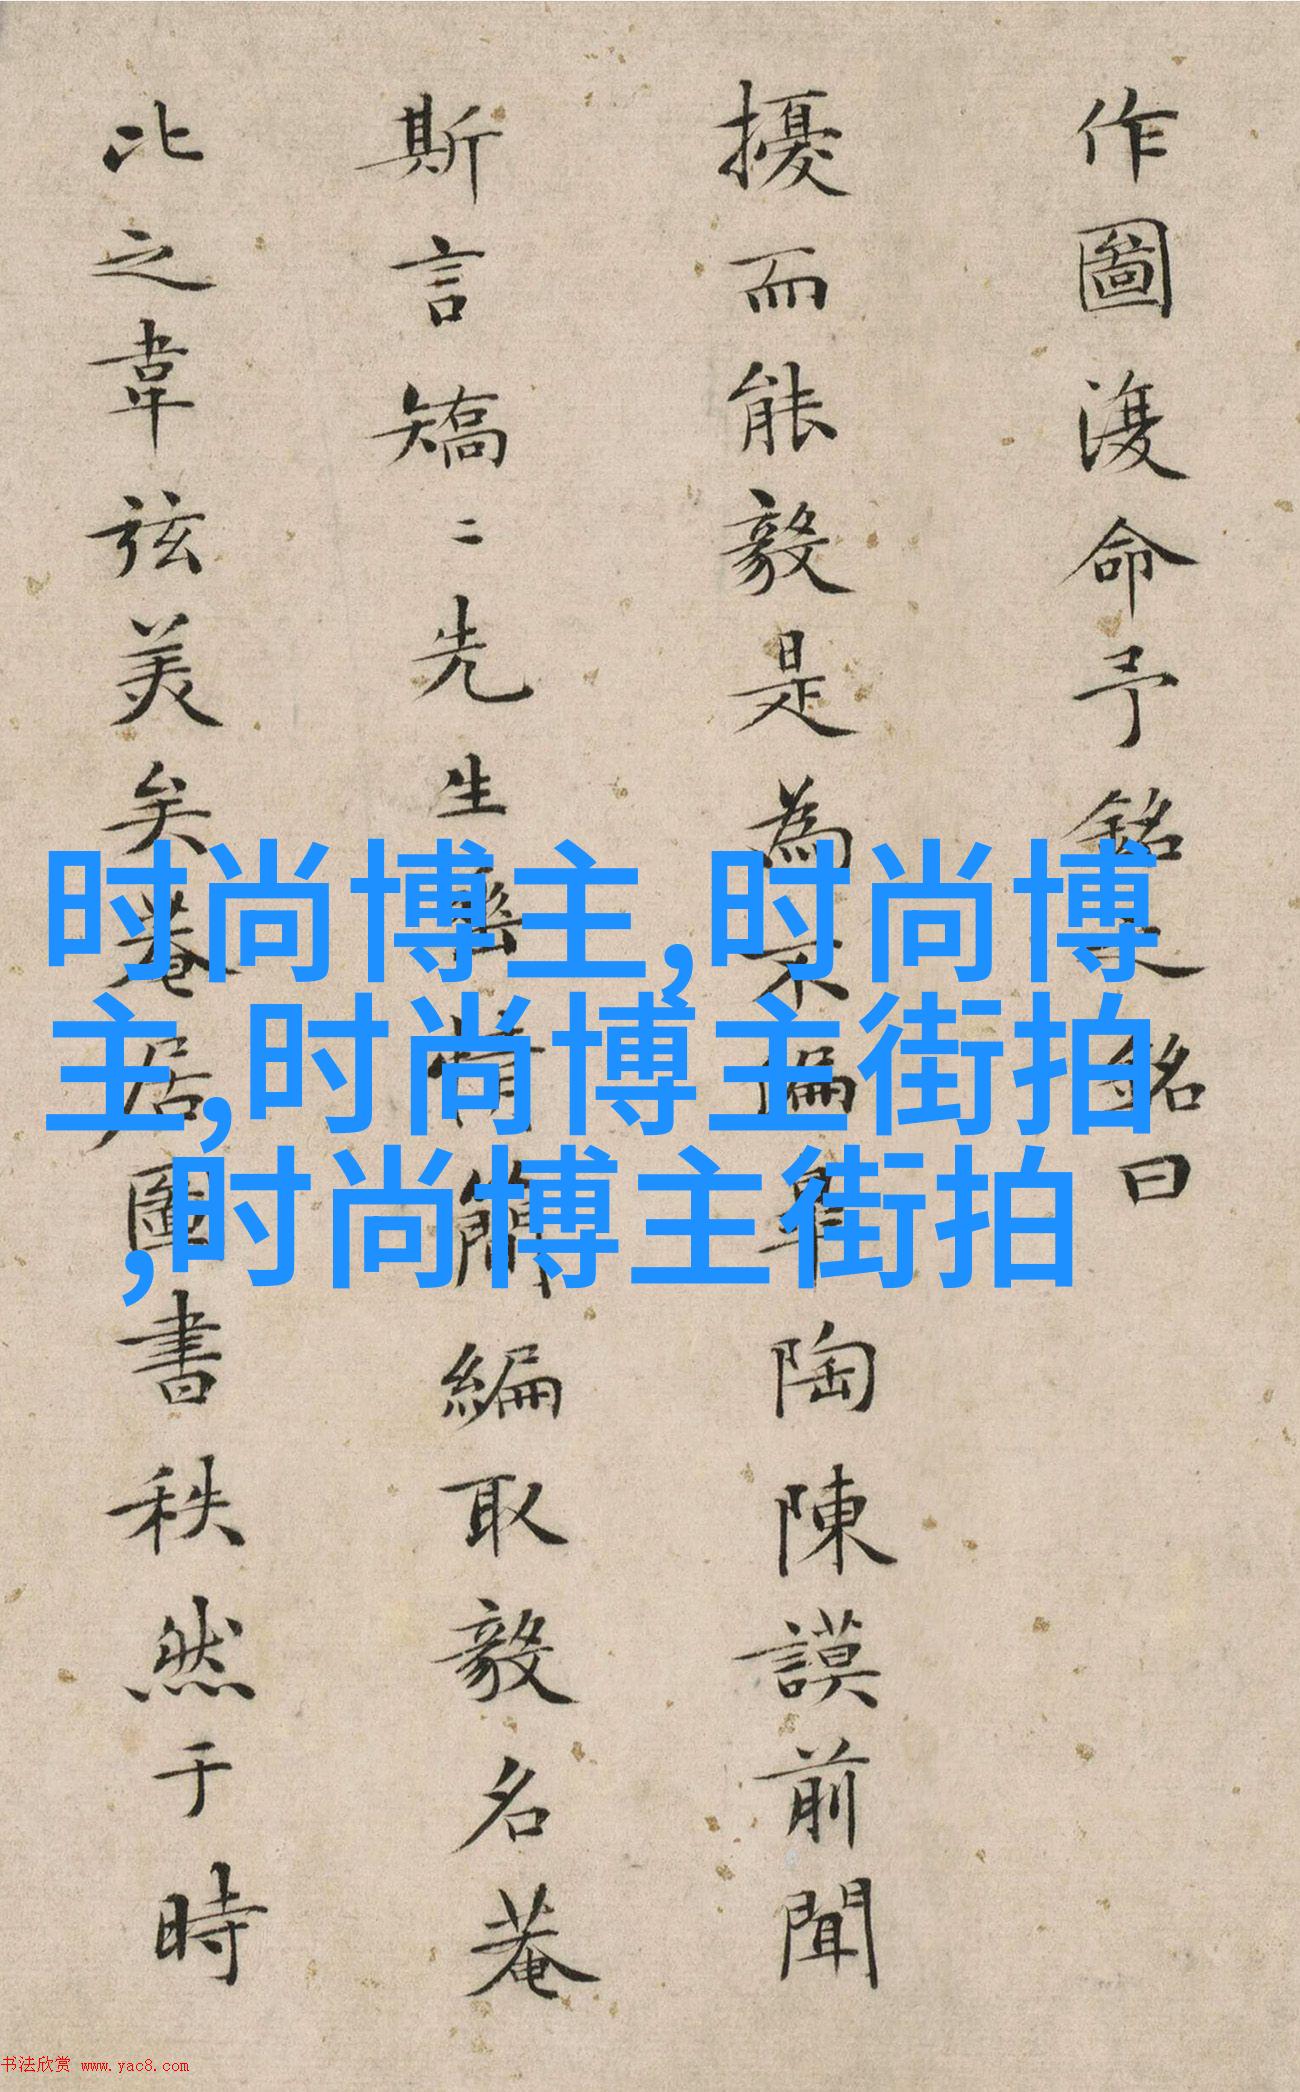 作圖復命予銘之銘曰
擾而能毅是為不偏皋陶陳謨前聞
斯言矯二先生安情簡編取毅名菴
比之韋弦美矣菴居圖書秩然于時
时尚博主,时尚博
主,时尚博主街拍
,时尚博主街拍
书法欣赏 www.yac8.com